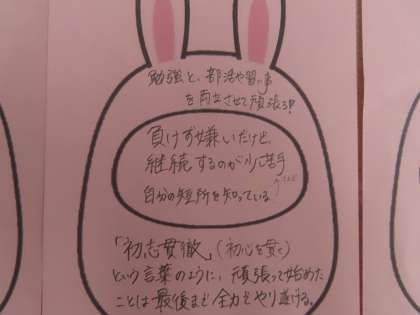 勉強と、部活や習い事
を両立させて頑張る!
負けず嫌いだけど、
継続するのが少し苦手
自分の短所を知っている
「初志貫徹」(初心を貫く)
という言葉のように、頑張って始めた
ことは最後まで全力でやり遂げる。